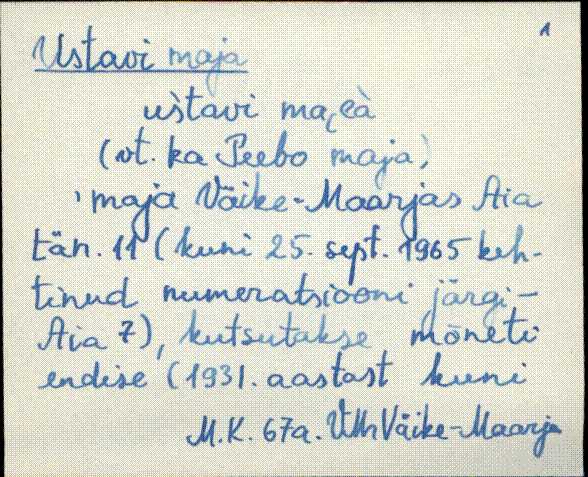 1
Ustavi maja
ùstavi ma
(vt. ka Peebo maja)
'maja Väike-Maarjas Aia
tän. 11 (kuni 25. sept. 1965 keh-
tinud numeratsiooni järgi-
Aia 7), kutsutakse mõneti
endise (1931. aastast kuni
M.K. 67a. VMr Väike-Maarja